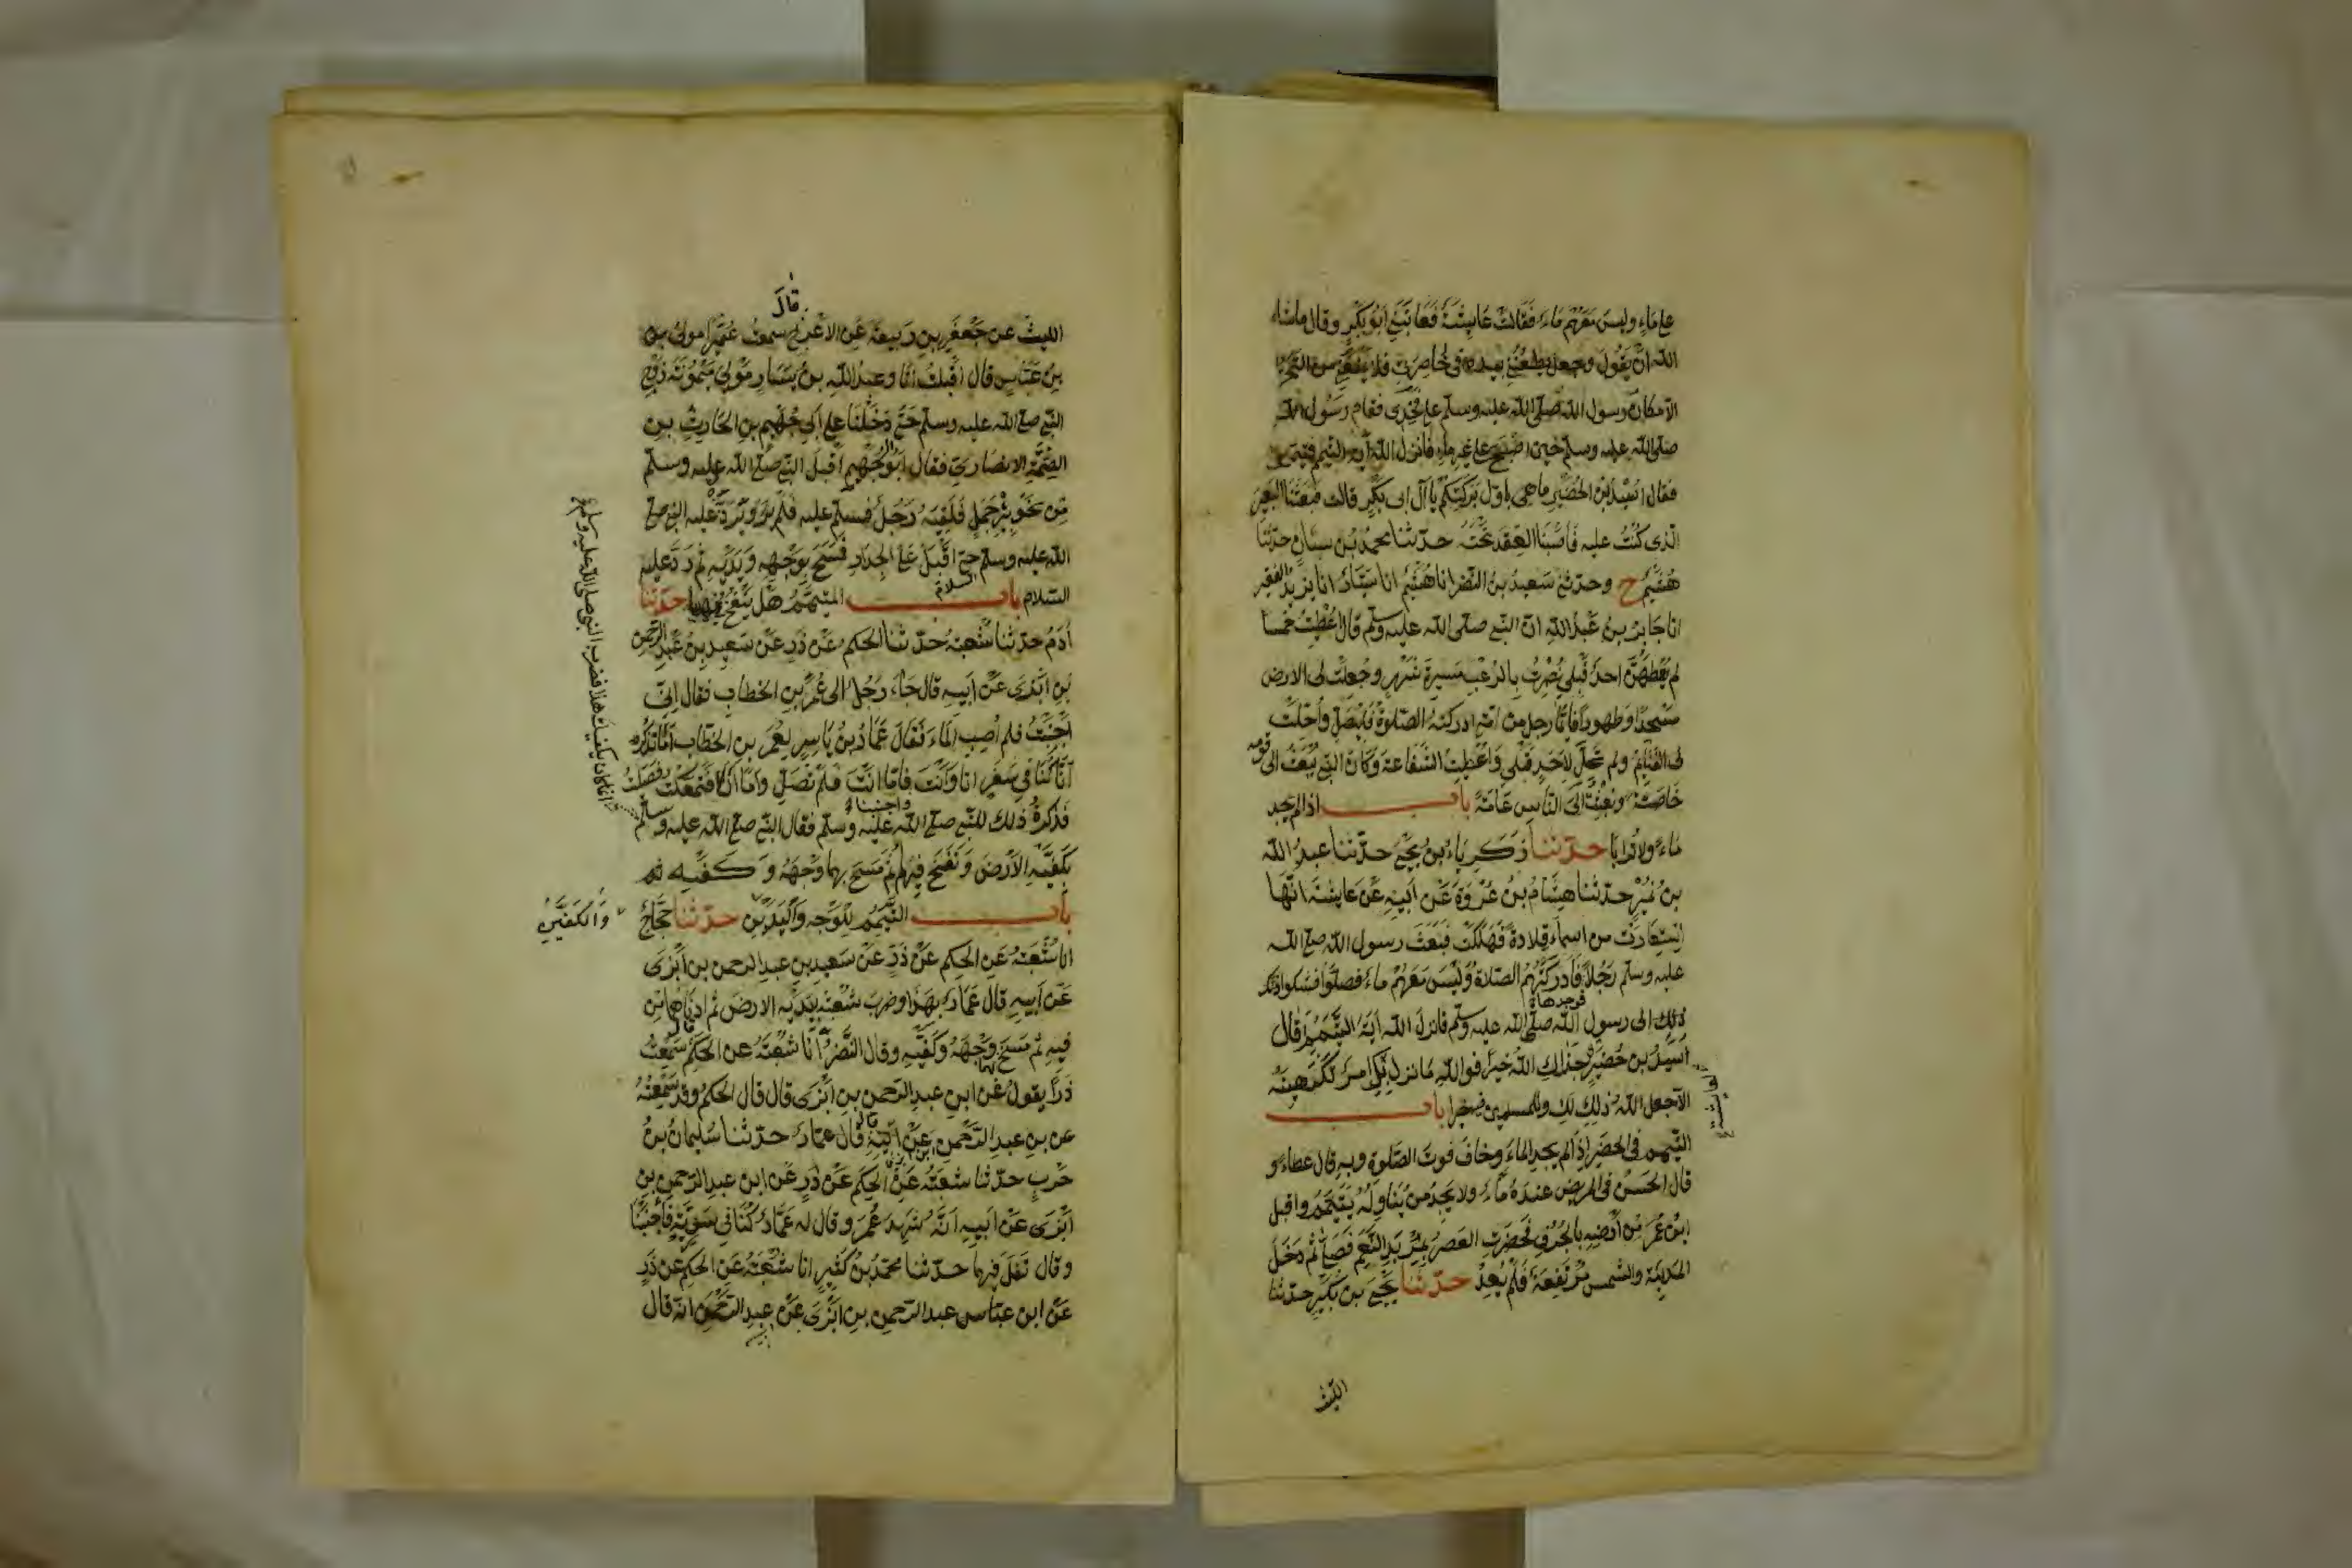 على ماء وليس معهم ماء فقالت عائشة فعاتبني ابو بكر وقال ماشاء
الله ان يقول وجعل يطعنني بيده في خاصرتي فلا يمنعني من التحرك
الا مكان رسول الله صلى الله عليه وسلم على فخذي فقام رسول الله
صلى الله عليه وسلم حين اصبح على غير ماء فانزل الله آية التيمم فتيمموا
فقال اسيد بن الحضير ما هي باول بركتكم يا آل ابي بكر قالت فبعثنا البعير
الذي كنت عليه فاصبنا العقد تحته حدثنا محمد بن سنان حدثنا
هشيم ح وحدثني سعيد بن النضر انا هشيم انا سيار انا يزيد الفقير
انا جابر بن عبد الله ان النبي صلى الله عليه وسلم قال اعطيت خمسا
لم يعطهن احد قبلي نصرت بالرعب مسيرة شهر وجعلت لي الارض
مسجدا وطهورا فايما رجل من امتي ادركته الصلوة فليصل واحلت
لي الغنايم ولم تحل لاحد قبلي واعطيت الشفاعة وكان النبي يبعث الى قومه
خاصة وبعثت الى الناس عامة باب اذا لم يجد
ماء ولا ترابا حدثنا زكرياء بن يحيى حدثنا عبد الله
بن نمير حدثنا هشام بن عروة عن ابيه عن عايشة انها
استعارت من اسماء قلادة فهلكت فبعث رسول الله صلى الله
عليه وسلم رجلا فادركتهم الصلاة وليس معهم ماء فصلوا فشكوا ذلك
فوجدها
ذلك الى رسول الله صلى الله عليه وسلم فانزل الله آية التيمم فقال
اسيد بن حضير جزاك الله خيرا فوالله ما نزل بك امر تكرهينه
الا جعل الله ذلك لك وللمسلمين فيه خيرا باب
التيمم في الحضر اذا لم يجد الماء وخاف فوت الصلوة وبه قال عطاء و
قال الحسن في المريض عنده ماء ولا يجد من يناوله يتيمم واقبل
ابن عمر من ارضه بالجرف فحضرت العصر بمربد النعم فصلى ثم دخل
المدينة والشمس مرتفعة فلم يعد حدثنا يحيى بن بكير حدثنا
الليث
قال
الليث عن جعفر بن ربيعة عن الاعرج سمعت عميرا مولى بن
بن عباس قال اقبلت انا وعبد الله بن يسار مولى ميمونة زوج
النبي صلى الله عليه وسلم حتى دخلنا على ابي جهيم بن الحارث بن
الصمة الانصاري فقال ابو الجهيم اقبل النبي صلى الله عليه وسلم
من نحو بئر جمل فلقيه رجل فسلم عليه فلم يرد عليه النبي صلى
الله عليه وسلم حتى اقبل على الجدار فمسح بوجهه ويديه ثم رد عليه
السلام
السلام باب المتيمم هل ينفخ فيهما حدثنا
آدم حدثنا شعبة حدثنا الحكم عن ذر عن سعيد بن عبد الرحمن
بن ابزى عن ابيه قال جاء رجل الى عمر بن الخطاب فقال اني
اجنبت فلم اصب الماء فقال عمار بن ياسر لعمر بن الخطاب اما تذكر
انا كنا في سفر انا وانت فاما انت فلم تصل واما انا فتمعكت فصليت
فذكرت ذلك للنبي صلى الله عليه وسلم فقال النبي صلى الله عليه وسلم
انما كان يكفيك هكذا فضرب النبي صلى الله عليه وسلم
بكفيه الارض ونفخ فيهما ثم مسح بهما وجهه وكفيه
باب التيمم للوجه واليدين حدثنا حجاج
والكفين
انا شعبة عن الحكم عن ذر عن سعيد بن عبد الرحمن بن ابزى
عن ابيه قال عمار بهذا وضرب شعبة بيديه الارض ثم ادناهما من
فيه ثم مسح وجهه وكفيه وقال النضر انا شعبة عن الحكم سمعت
ذرا يقول عن ابن عبد الرحمن بن ابزى قال قال الحكم وقد سمعته
عن بن عبد الرحمن عن ابيه قال عمار حدثنا سليمان بن
حرب حدثنا شعبة عن الحكم عن ذر عن ابن عبد الرحمن بن
ابزى عن ابيه انه شهد عمر وقال له عمار كنا في سرية فاجنبنا
وقال تفل فيهما حدثنا محمد بن كثير انا شعبة عن الحكم عن ذر
عن ابن عبد الرحمن بن ابزى عن عبد الرحمن انه قال